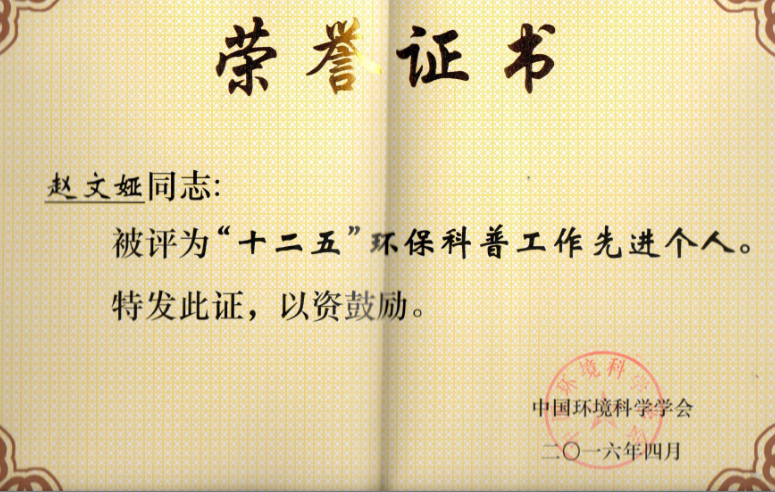 荣誉证书
赵文娅同志:
被评为“十二五”环保科普工作先进个人。
特发此证，以资鼓励。
中国环境科学学会
二〇一六年四月